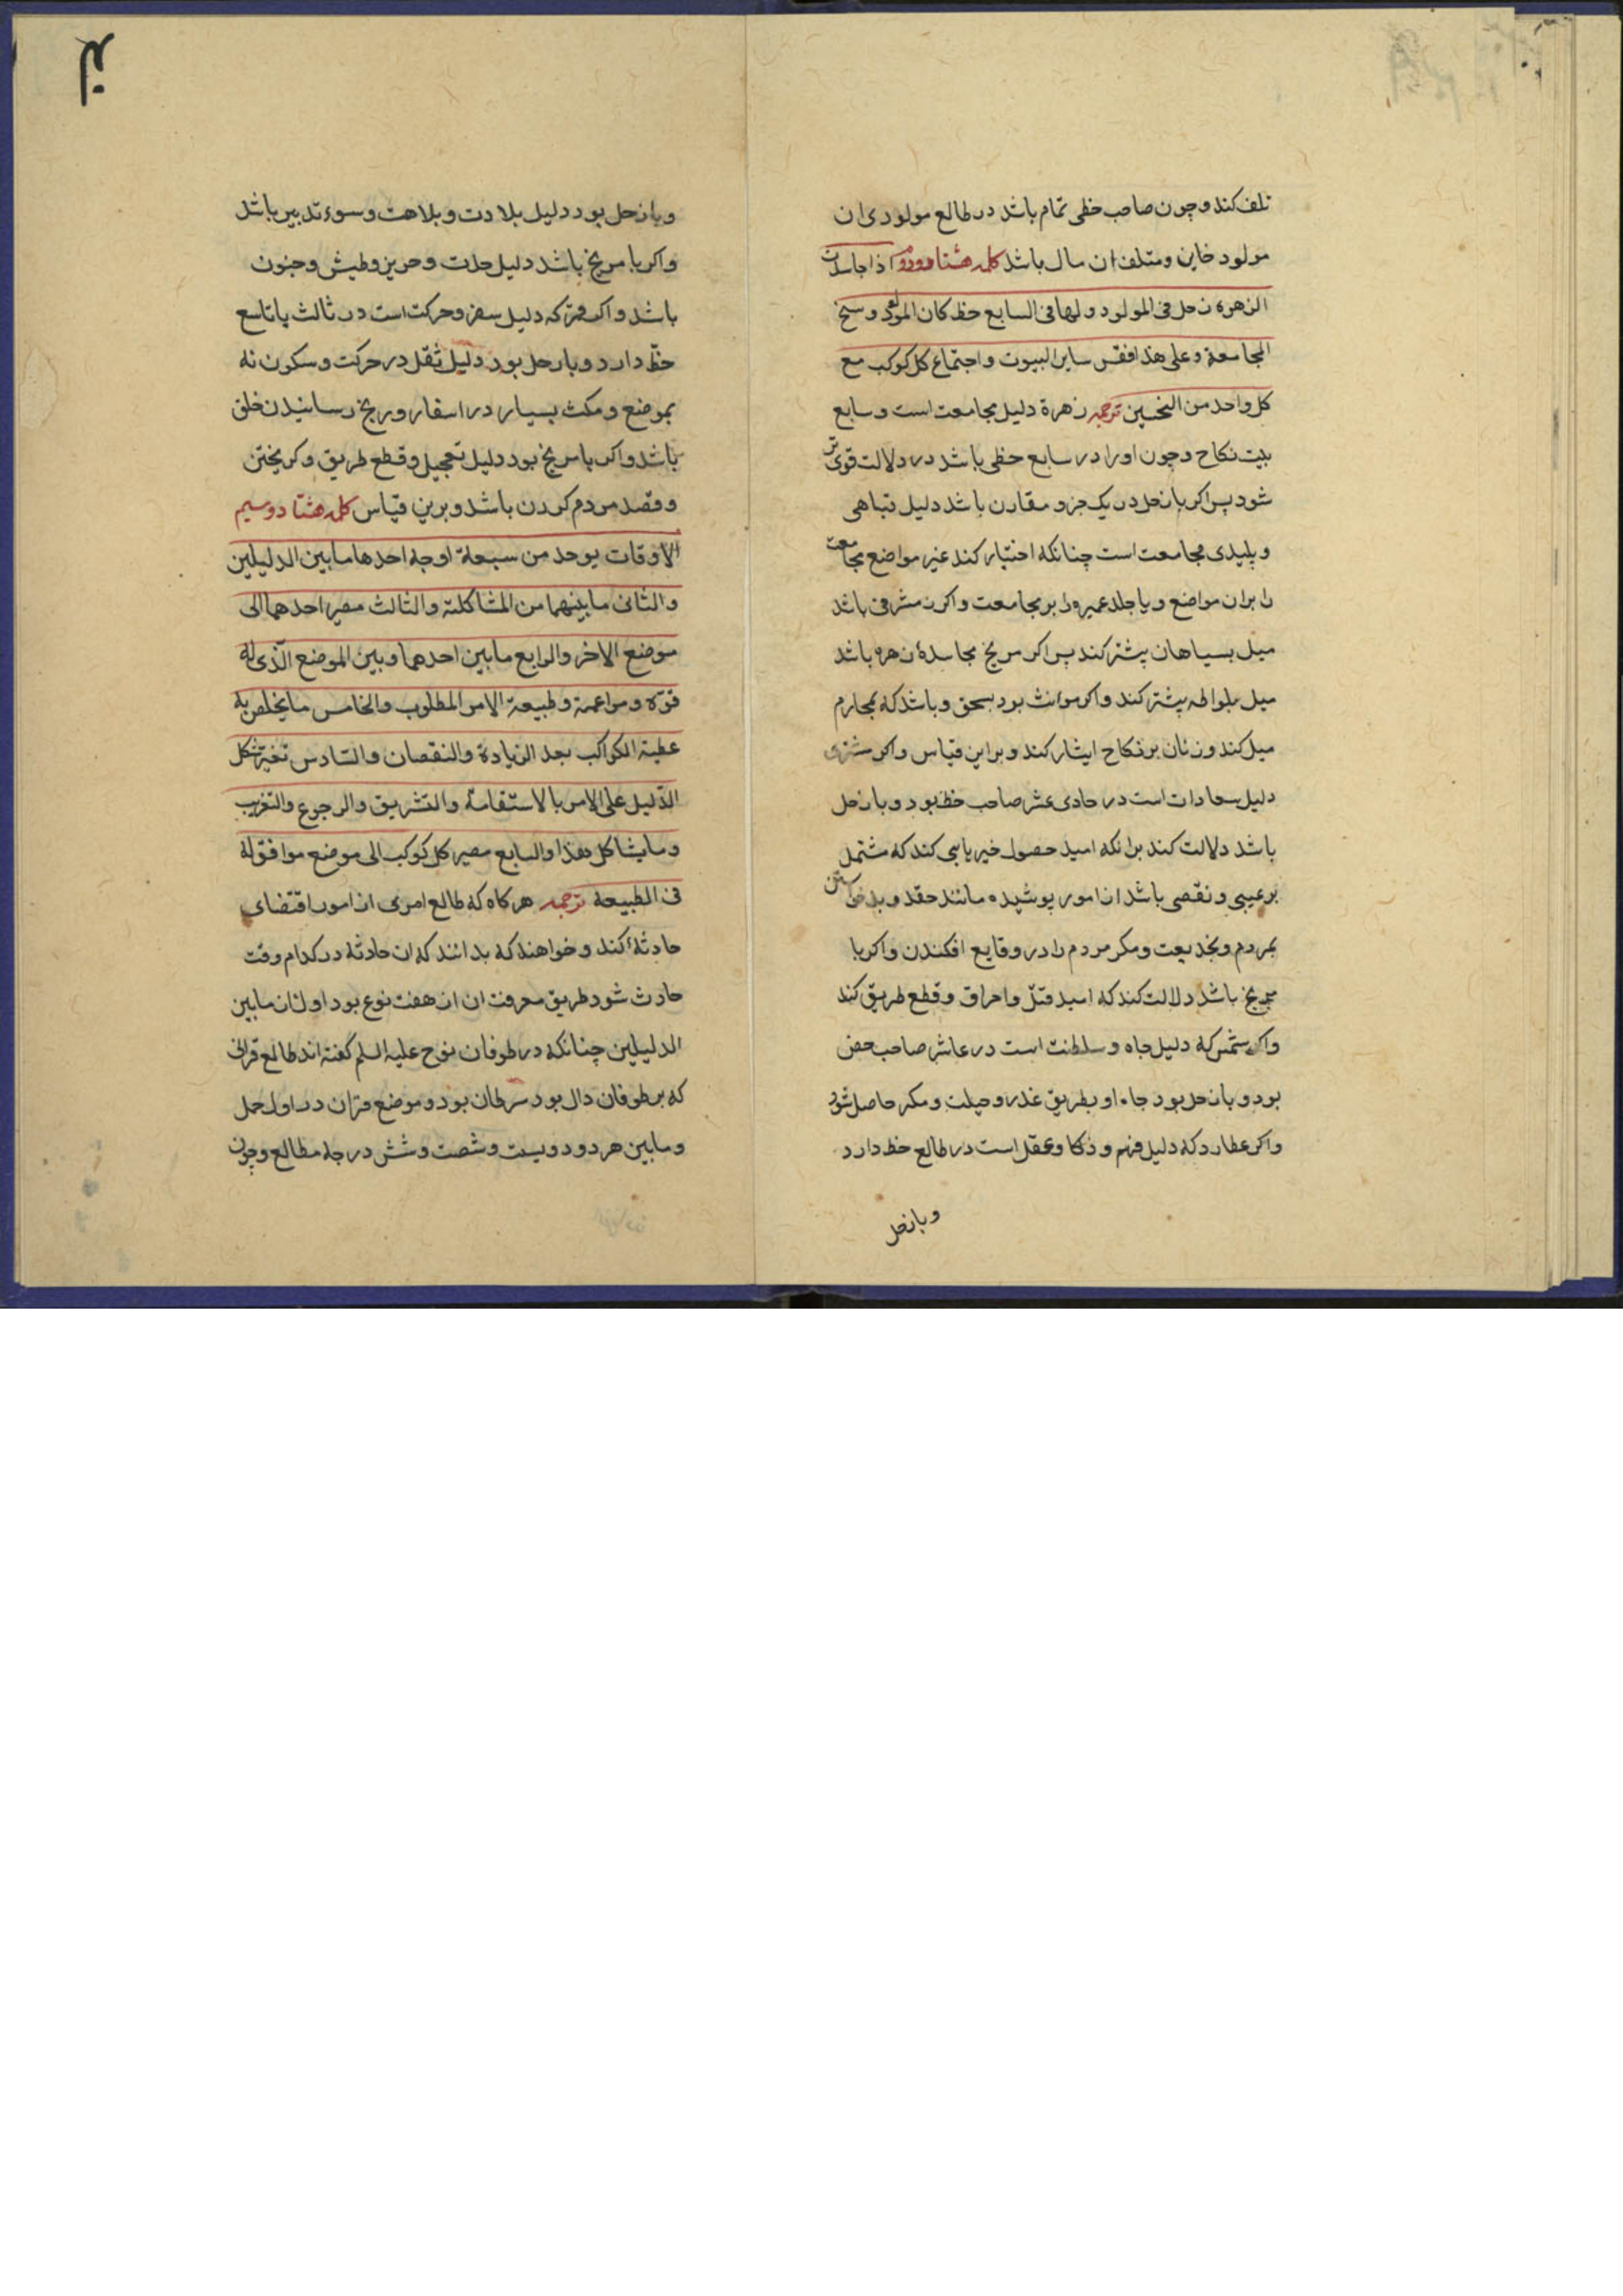 تلف کند و چون صاحب حظی تمام باشد در طالع مولودی ان
مولود خاین و متلف ان مال باشد کلمه هشتاد و دوم اذا جاسدت
الزهره زحل فی المولود و لها فی السابع حظ کان المولود وسخ
المجامعة و علی هذا فقس سایر البیوت و اجتماع کل کوکب مع
کل واحد من النحسین ترجمه زهرة دلیل مجامعت است و سابع
بیت نکاح و چون او را در سابع حظی باشد در دلالت قوی تر
شود پس اکر با زحل در یک جزو مقارن باشد دلیل تباهی
و پلیدی مجامعت است چنانکه اختیار کند غیر مواضع مجامعت
را بران مواضع و یا جلد عمیره را بر مجامعت و اکر مشرقی باشد
میل بسیاهان پشتر کند پس اکر مریخ مجاسدهٔ زهره باشد
میل بلواطه پیشتر کند و اکر موانث بود بسحق و باشد که بمحارم
میل کند و زنان بر نکاح ایثار کند و براین قیاس و اکر مشتری
دلیل سعادات است در حادی عشر صاحب حظ بود و با زحل
باشد دلالت کند برانکه امید حصول خیر یا سی کند که مشتمل
بر عیبی و نقصی باشد از امور پوشیده مانند حقد و بد خواستن
بمردم و بخدیعت و مکر مردم را در وقایع افکندن و اکر با
مریخ باشد دلالت کند که امید قتل و احراق و قطع طریق کند
واکر شمس که دلیل جاه و سلطنت است در عاشر صاحب حض
بود و با زحل بود جاه او بطریق غدر و حیلت و مکر حاصل شود
واکر عطارد که دلیل فهم و ذکا و عقل است در طالع حظ دارد
و با زحل
و با زحل بود دلیل بلادت و بلاهت و سوء تدبیر باشد
واکر با مریخ باشد دلیل حدت و وطیش و جنون
باشد و اکر قمر که دلیل سفر و حرکت است در ثالث یا تاسع
حظّ دارد و با زحل بود دلیل ثقل در حرکت و سکون نه
بموضع و مکث بسیار در اسفار و رنج رسانیدن خلق
باشد و اکر با مریخ بود دلیل تعجیل و قطع طریق و کریختن
و قصد مردم کردن باشد و برین قیاس کلمه هشتاد و سیم
الاوقات یوخد من سبعة اوجه احدها ما بین الدلیلین
والثانی ما بینهما من المشاکلة والثالث مصیر احدهما الی
موضع الاخر والرابع ما بین احدهما و بین الموضع الّذی له
قوّة و مزاعمة و طبیعة الامر المطلوب والخامس ما یخلص به
عطیة الکواکب بعد الزیادة والنقصان والسّادس تغیّر شکل
الدّلیل علی الامر بالاستقامة والتشریق والرجوع والتغریب
و ما یشاکل هذا والسابع مصیر کل کوکب الی موضع موافق له
فی الطبیعة ترجمه هر کاه که طالع امری از امور اقتضای
حادثهٔ کند و خواهند که بدانند که ان حادثه در کدام وقت
حادث شود طریق معرفت ان از هفت نوع بود اول ان ما بین
الدلیلین چنانکه در طوفان نوح علیه السلم کفته اند طالع قرانی
که بر طوفان دال بود سرطان بود و موضع قران در اول حمل
و ما بین هر دو دویست و شصت و شش درجه مطالع و چون